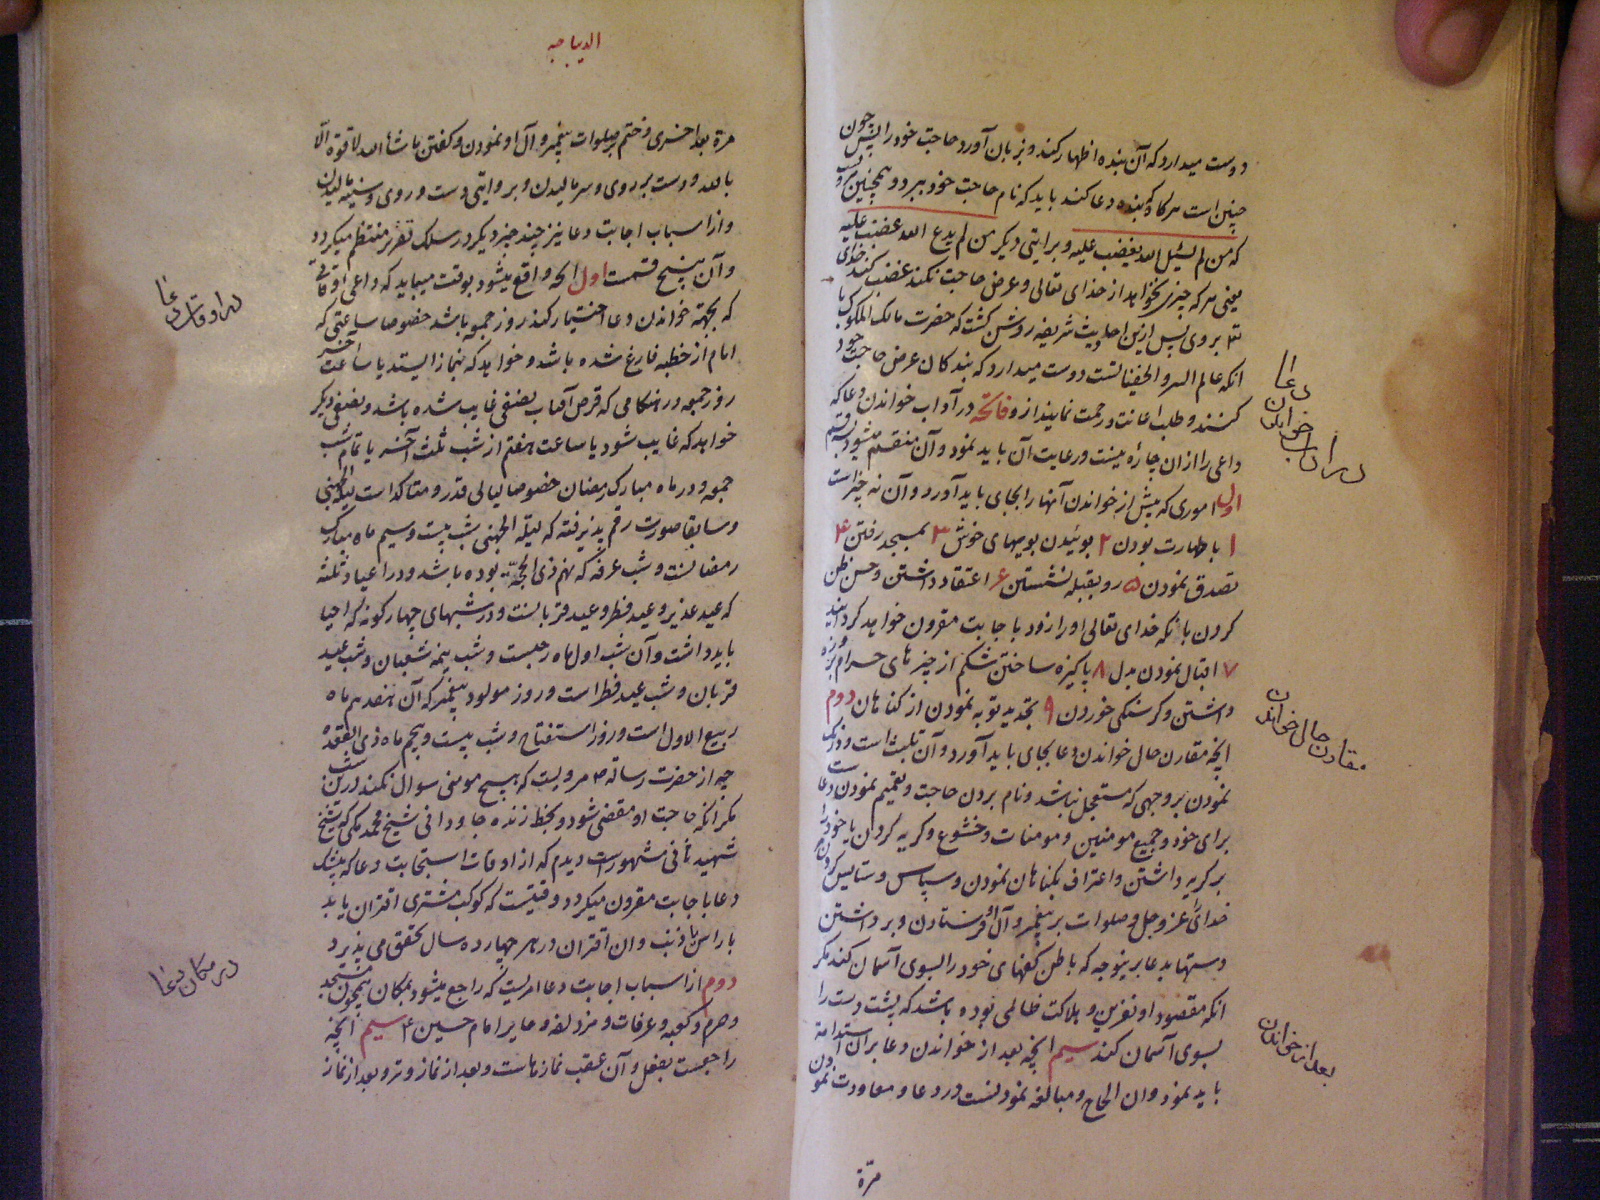 دوست میدارد که آن بنده اظهار کند و بزبان آورد حاجت خود را پس چون
چنین است هرکاه بنده دعا کند باید که نام حاجت خود ببرد و همچنین مرویست
که من لم یسئل الله یغضب علیه و بروایتی دیکر من لم یدع الله غضب علیه
یعنی هر که چیزی نخواهد از خدای تعالی و عرض حاجت نکند غضب کند خدای
بروی پس ازین احادیث شریفه روشن کشت که حضرت مالک الملوک با
انکه عالم السر و الخفیاتست دوست میدارد که بندکان عرض حاجت خود
کنند و طلب اعانت و رحمت نمایند از و فاتحه در آداب خواندن دعا که
داعی را از ان چاره نیست و رعایت آن باید نمود و آن منقسم میشود بسه قسم
اول اموری که پیش از خواندن آنها را بجای باید آورد و آن نه چیز است
۱ با طهارت بودن ۲ بوئیدن بویهای خوش ۳ بمسجد رفتن ۴
تصدق نمودن ۵ رو بقبله نشستن ۶ اعتقاد داشتن و حسن ظن
کردن بانکه خدای تعالی او را زود با جابت مقرون خواهد کردانید
۷ اقبال نمودن بدل ۸ پاکیزه ساختن شکم از چیزهای حرام و روزه
داشتن و کرسنکی خوردن ۹ تجدید توبه نمودن از کناهان دوم
انچه مقارن حال خواندن دعا بجای باید آورد و آن تلبث است و درنک
نمودن بر وجهی که مستعجل نباشد و نام بردن حاجت و تعمیم نمودن دعاست
برای خود و جمیع مومنین و مومنات و خشوع و کریه کردن یا خود را
بر کریه داشتن و اعتراف بکناهان نمودن و سپاس و ستایش کردن
خدای عز و جل و صلوات بر پیغمبر و آل او فرستادن و برداشتن
دستها بدعا برینوجه که باطن کفهای خود را بسوی آسمان کند مکر
انکه مقصود او نفرین و هلاکت ظالمی بوده باشد که پشت دست را
بسوی آسمان کند سیم انچه بعد از خواندن دعا بران استدامه
باید نمود و ان الحاح و مبالغه نمودنست در دعا و معاودت نمودن
مرّة
در آداب خواندن دعا
مقارن حال خواندن
بعد از خواندن
الدیباجه
مرة بعد اخری و ختم بر صلوات پیغمبر و آل او نمودن و کفتن ما شاء الله لا قوة الّا
بالله و دست بر روی و سر مالیدن و بروایتی دست و روی و سینه مالیدن
و از اسباب اجابت دعا نیز چند چیز دیکر در سلک تقریر منتظم میکردد
و آن پنج قسمت اول انچه واقع میشود بوقت میباید که داعی اوقاتی
که بجهة خواندن دعا اختیار کند روز جمعه باشد خصوصا ساعتی که
امام از خطبه فارغ شده باشد و خواهد که بنماز ایستد یا ساعت آخر
روز جمعه در هنکامی که قرص آفتاب نصفی غایب شده باشد و نصفی دیکر
خواهد که غایب شود یا ساعت هفتم از شب ثلث آخر یا تمام شب
جمعه و در ماه مبارک رمضان خصوصا لیالی قدر و متاکد است لیلة الجهنی
و سابقا صورت رقم پذیرفته که لیلة الجهنی شب بیست و سیم ماه مبارک
رمضانست و شب عرفه که نهم ذی الحجّه بوده باشد و در اعیاد ثلثه
که عید غدیر و عید فطر و عید قربانست و در شبهای چهارکونه که احیا
باید داشت و آن شب اول ماه رجبست و شب نیمه شعبان و شب عید
قربان و شب عید فطر است و روز مولود پیغمبر که آن هفدهم ماه
ربیع الاول است و روز استفتاح و شب بیست و پنجم ماه ذی القعده
چه از حضرت رساله ص مرویست که هیچ مومنی سوال نکند درین شب
مکر انکه حاجت او مقضی شود و بخط زنده جاودانی شیخ محمد مکی که بشیخ
شهید ثانی مشهور است دیدم که از اوقات استجابت دعا که بیشک
دعا با جابت مقرون میکردد وقتیست که کوکب مشتری اقتران یابد
با راس یا ذنب و ان اقتران در هر چهارده سال تحقق می پذیرد
دوم از اسباب اجابت دعا امریست که راجع میشود بمکان همچون مسجد
و حرم و کعبه و عرفات و مزدلفه و حایر امام حسین ع سیم انچه
راجعست بفعل و آن عقب نمازهاست و بعد از نماز وتر و بعد از نماز
در اوقات دعا
در مکان دعا